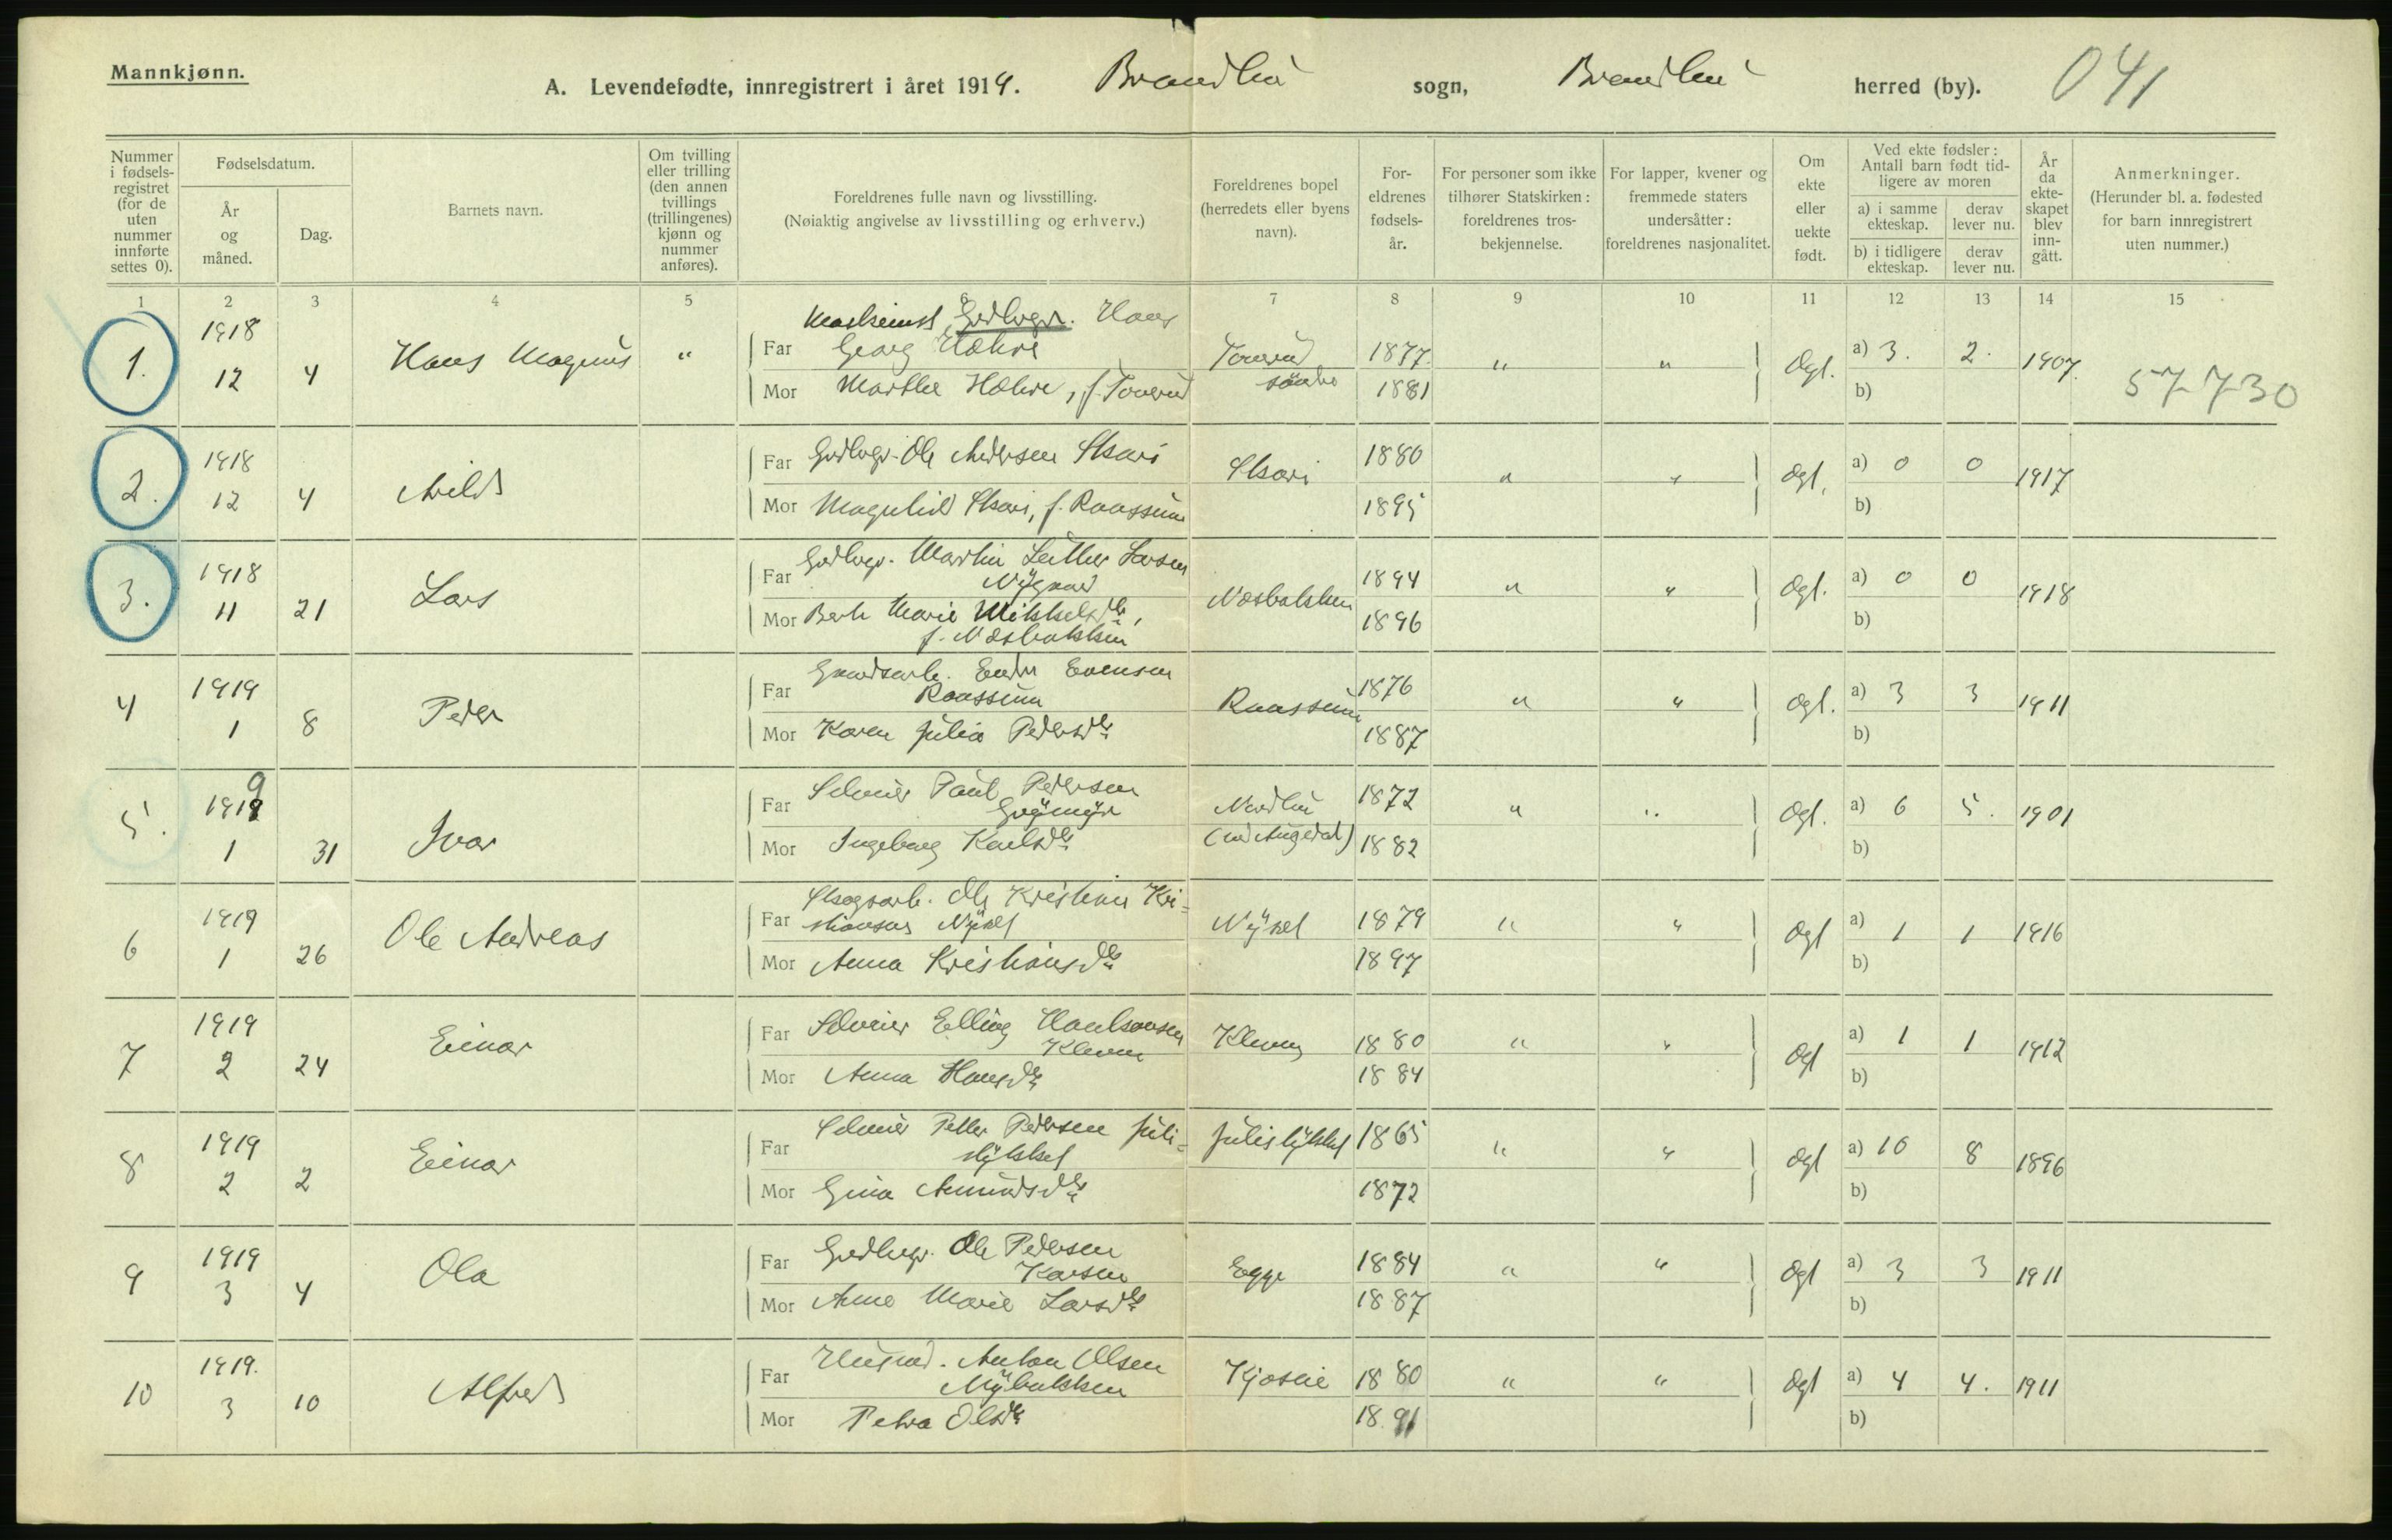 Mannkjønn.
A. Levendefødte, innregistrert i året 1919. Brandbu sogn, Brandbu herred (by). 041
Nummer i fødselsregistret (for de uten nummer innførte settes 0).
Fødselsdatum.
År og måned.
Dag.
Barnets navn.
Om tvilling eller trilling (den annen tvillings (trillingenes) kjønn og nummer anføres).
Foreldrenes fulle navn og livsstilling.
(Nøiaktig angivelse av livsstilling og erhverv.)
Foreldrenes bopel (herredets eller byens navn).
For-eldrenes fødsels-år.
For personer som ikke tilhører Statskirken: foreldrenes tros-bekjennelse.
For lapper, kvener og fremmede staters undersåtter: foreldrenes nasjonalitet.
Om ekte eller uekte født.
Ved ekte fødsler: Antall barn født tid-ligere av moren
a) i samme ekteskap. derav lever nu.
b) i tidligere ekteskap. derav lever nu.
År da ekte-skapet blev inn-gått.
Anmerkninger.
(Herunder bl. a. fødested for barn innregistrert uten nummer.)
1 2 3 4 5 6 7 8 9 10 11 12 13 14 15
1. 1918 12 4 Hans Magnus "
Maskinist, Grdbrgr. Hans
Far Georg Hæhre Tonerud 1877 " " Egt. a) 3. 2. 1907.
Mor Marthe Hæhre, f. Tonerud søndre 1881 b) 57730
2. 1918 12 4 Arild
Far Grdbrgr. Ole Andersen Skari Skari 1880 " " Egt. a) 0 0 1917
Mor Magnhild Skari, f. Raassum 1895 b)
3. 1918 11 21 Lars
Far Grdbrgr. Martin Luther Larsen
Nygaard Næsbakken 1894 " " Egt. a) 0 0 1918
Mor Berte Marie Mikkelsdtr, 1896 b)
f. Næsbakken
4 1919 1 8 Peder
Far Gaardsarb. Even Evensen
Raassum Raassum 1876 " " Egt. a) 3 3 1911
Mor Karen Julia Pedersdtr 1887 b)
5. 1919 1 31 Ivar
Far Selveier Paul Pedersen
Grøymyr Nordbu 1872 " " Egt. a) 6 5. 1901
Mor Ingeborg Karlsdtr 1882 b)
6 1919 1 26 Ole Andreas
Far Skogsarb. Ole Kristian Kri=
stiansen Nyset Nyset 1879 " " Egt a) 1 1 1916
Mor Anna Kristiansdtr 1897 b)
7 1919 2 24 Einar
Far Selveier Elling Paulsen
Kleven Kleven 1880 " " Egt a) 1 1 1912
Mor Anna Hansdtr 1884 b)
8 1919 2 2 Einar
Far Selveier Petter Pedersen Juli=
stykket Julistykket 1865 " " Egt a) 10 8 1896
Mor Gina Amundsdtr 1872 b)
9 1919 3 4 Ola
Far Grdbrgr. Ole Pedersen
Egge 1884 " " Egt a) 3 3 1911
Mor Anne Marie Larsdtr 1887 b)
10 1919. 3 10 Alfred
Far Husmd. Anton Olsen
Mybakken 1880 " " Egt a) 4 4. 1911
Mor Petra Olsdtr 1891 b)